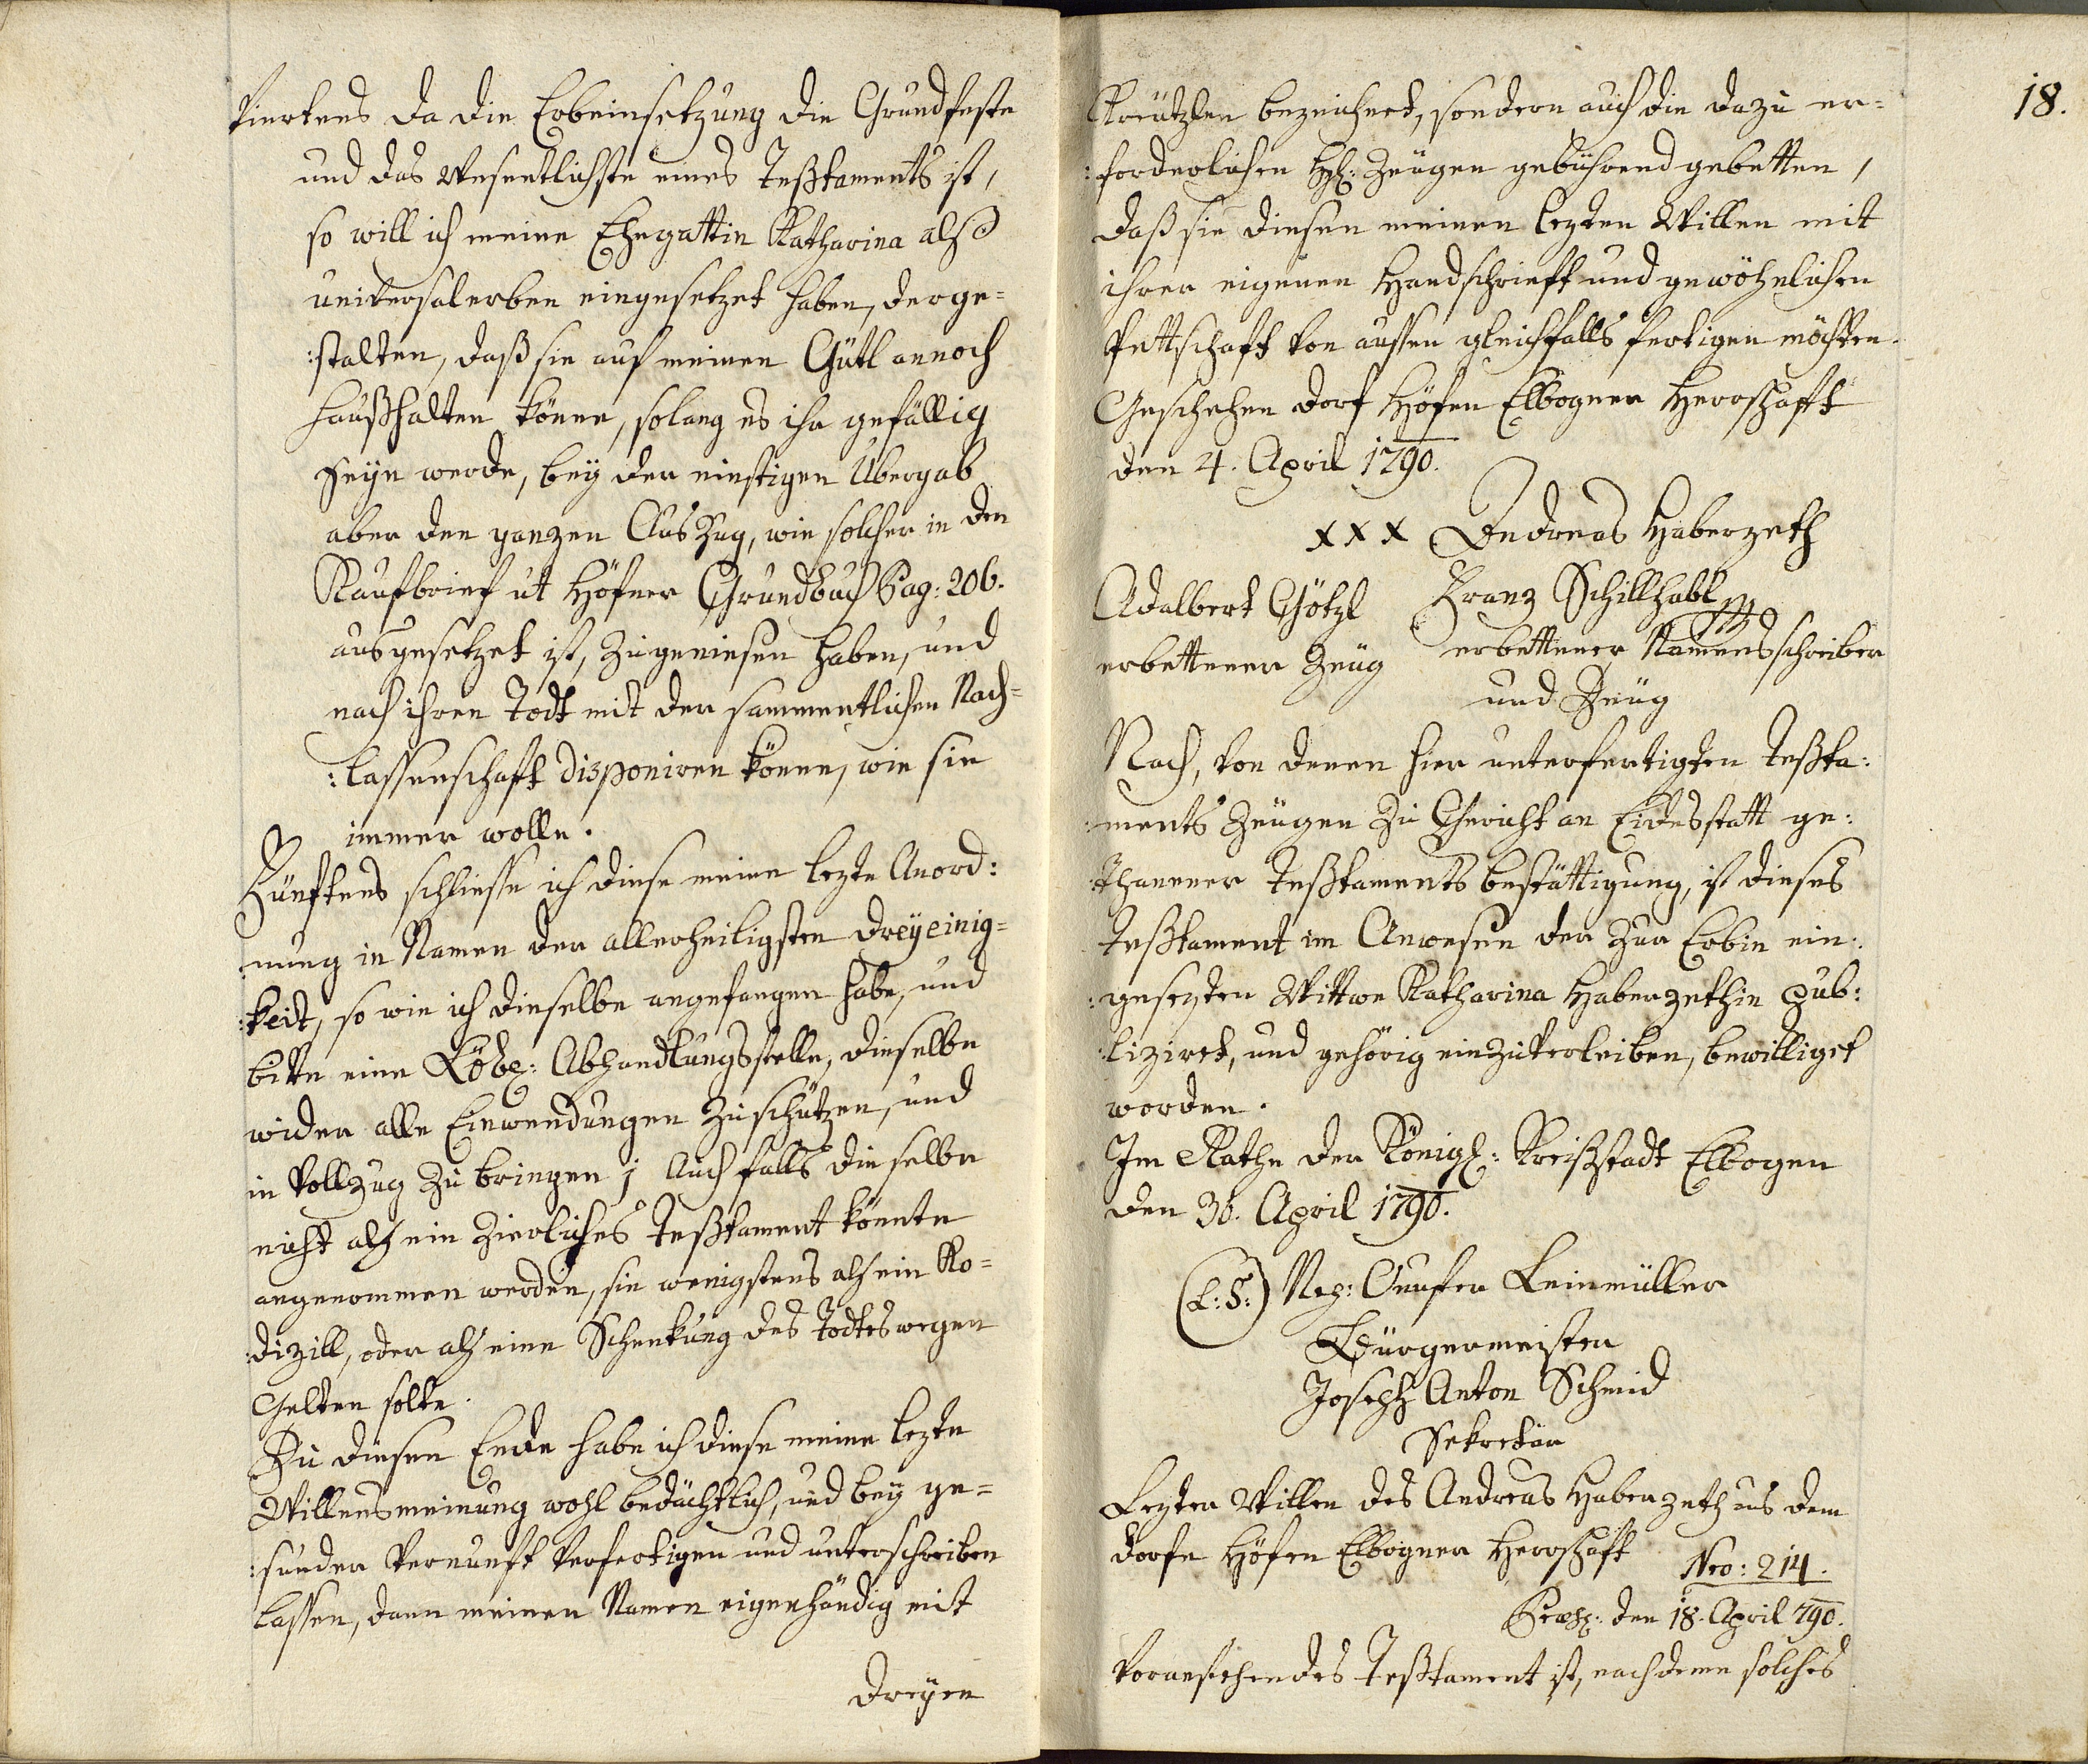 Viertens da die Erbeinsetzung die Grundfeste
und das Wesentlichste eines Teßtaments ist,
so will ich meine Ehegattin Katharina alß
universalerben eingesetzet haben, derge=
:stalten, daß sie auf meinen Gütl annoch
haußhalten könne, solang es ihr gefällig
seyn werde, bey der einstigen Übergab
aber den ganzen Auszug, wie solcher in den
Kaufbrief ut Höfner Grundbuch Pag: 206.
ausgesetzet ist, zugeniesen haben, und
nach ihren Todt mit der sammentlichen Nach=
:lassenschaft disponiren könne, wie sie
immer wolle.
Fünftens schliesse ich diese meine lezte Anord:
:nung in Namen der allerheiligsten Dreyeinig=
:keit, so wie ich dieselbe angefangen habe, und
bitte eine Löbl: Abhandlungsstelle, dieselbe
wider alle Einwendungen zu schützen, und
in Vollzug zu bringen; Auch falls dieselbe
nicht alß ein zierliches Teßtament könnte
angenommen werden, sie wenigstens alß ein Ko=
:dizill, oder alß eine Schenkung des Todtes wegen
Gelten solte.
Zu diesen Ende habe ich diese meine lezte
Willensmeinung wohl bedächtlich, und bey ge=
:sunder Vernunft verfertigen und unterschreiben
lassen, dann meinen Namen eigenhändig mit
dreyen
18.
Kreützlen bezeichnet, sondern auch die dazu er=
:forderlichen HH: Zeugen gebührend gebetten,
daß sie diesen meinen lezten Willen mit
ihrer eigenen Handschrieft und gewöhnlichen
Pettschaft von aussen gleichfalls fertigen möchten.
Geschehen Dorf Höfen Elbogner Herrschafft
den 4. April 1790.
xxx Andreas Haberzeth
Adalbert Götzl Franz Schillhabl
erbettener Zeüg erbettener Namensschreiber
und Zeüg
Nach, von denen hier unterfertigten Teßta:
:ments Zeugen zu Gericht an Eidesstatt ge:
:thanener Teßtaments bestättigung, ist dieses
Teßtament im Anwesen der zur Erbin ein:
:gesezten Wittwe Katharina Haberzethin pub:
:lizirt, und gehörig einzuverleiben, bewilliget
worden.
Im Rathe der Königl: Kreißstadt Elbogen
den 30. April 1790.
(L:S:) Nep: Onufer Leinmüller
Bürgermeister
Joseph Anton Schmid
Sekretär
Lezter Willen des Andreas Haberzeth aus dem
Dorfe Höfen Elbogner Herrschaft
Nro: 214.
Præs: den 18. April 790.
Voranstehendes Teßtament ist, nachdeme solches